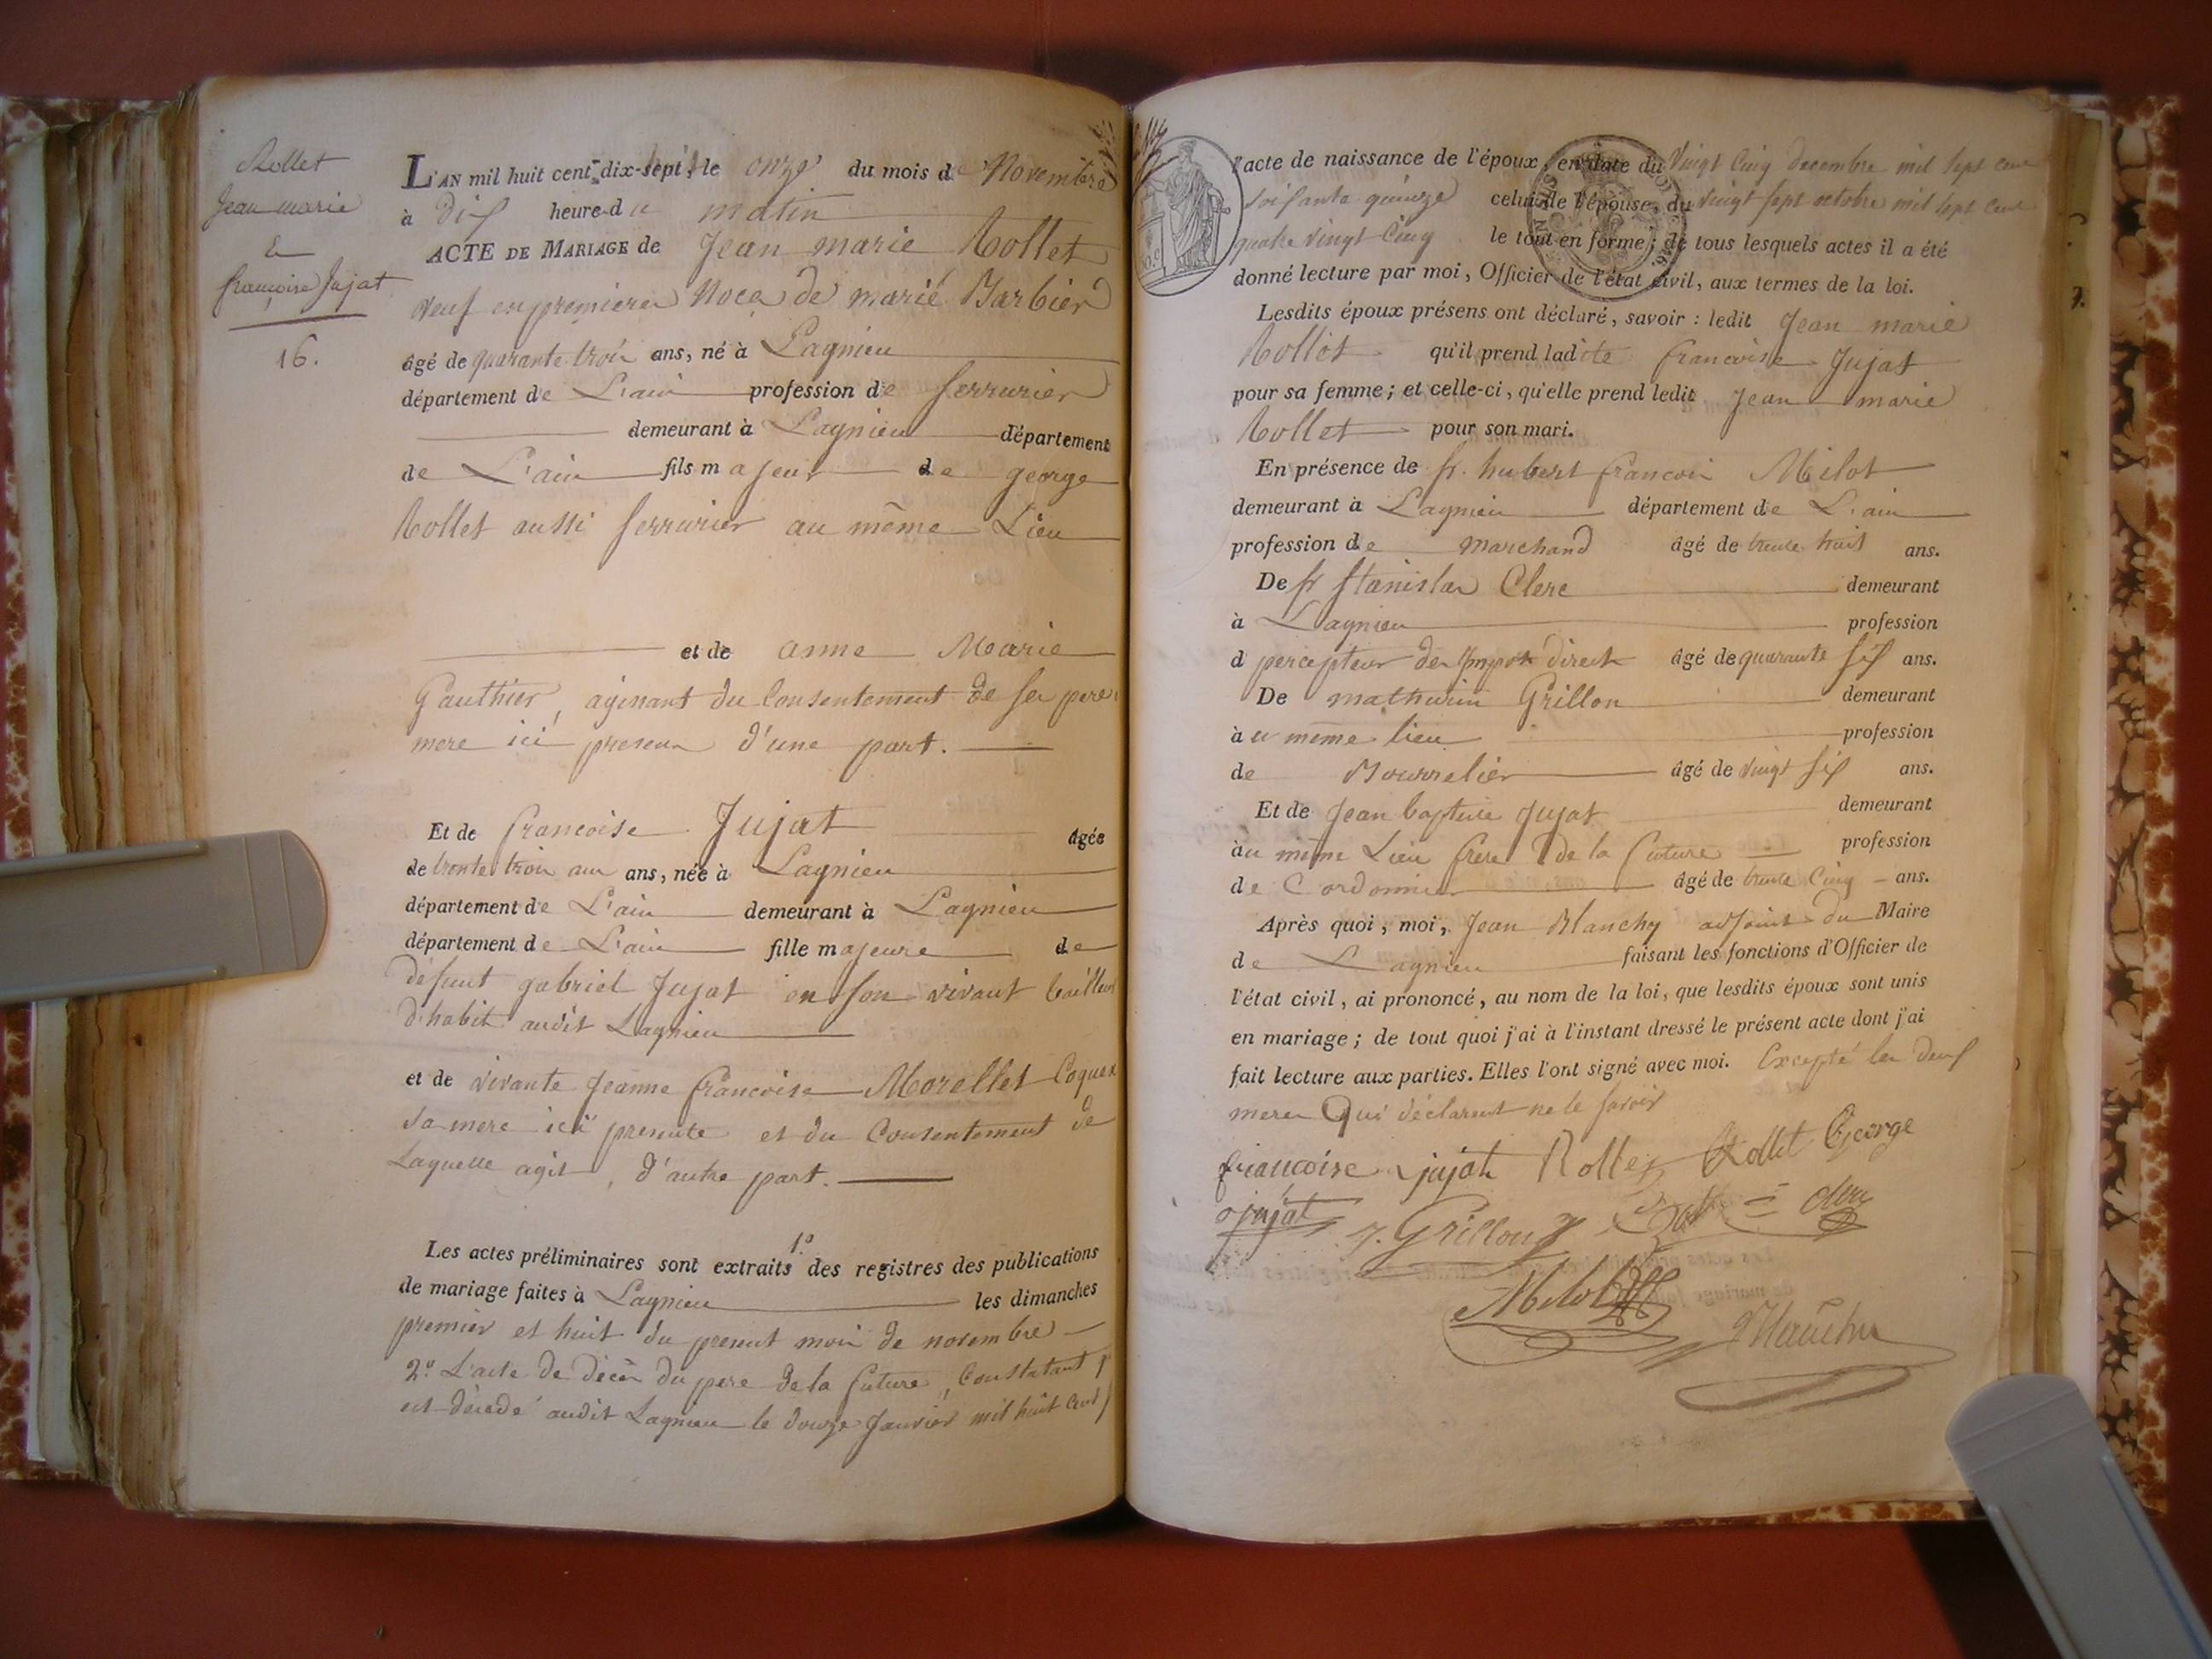 Rollet
Jean marie
&
francoise Jujat
16.
L'AN mil huit cent dix-huit, le onze du mois de Novembre
à dix heure du matin
ACTE DE MARIAGE de Jean marie Rollet
veuf en premieres Noces de marie Barbier
âgé de quarante trois ans, né à Lagnieu
département de L'ain profession de serrurier
demeurant à Lagnieu département
de L'ain fils majeur de george
Rollet aussi serrurier au même Lieu
et de anne Marie
Gauthier, agissant du Consentement de ses pere
mere ici presens d'une part.
Et de francoise Jujat âgée
de trente trois ans ans, née à Lagnieu
département de L'ain demeurant à Lagnieu
département de L'ain fille majeure de
défunt gabriel Jujat en son vivant tailleur
d'habit audit Lagnieu
et de vivante Jeanne francoise Morellet Coquet
sa mere ici presente et du Consentement de
Laquelle agit, d'autre part.
Les actes préliminaires sont extraits 1.º des registres des publications
de mariage faites à Lagnieu les dimanches
premier et huit du present mois de novembre
2.º L'acte de décès du pere de la future, Constatant
est décédé audit Lagnieu le douze Janvier mil huit cent
l'acte de naissance de l'époux, en date du Vingt Cinq decembre mil sept cent
soixante quinze celui de l'épouse, du vingt sept octobre mil sept cent
quatre vingt Cinq le tout en forme; de tous lesquels actes il a été
donné lecture par moi, Officier de l'état civil, aux termes de la loi.
Lesdits époux présens ont déclaré, savoir : ledit Jean marie
Rollet qu'il prend ladite francoise Jujat
pour sa femme; et celle-ci, qu'elle prend ledit Jean marie
Rollet pour son mari.
En présence de sr. hubert francois Milot
demeurant à Lagnieu département de L'ain
profession de marchand âgé de trente huit ans.
De sr Stanislas Clerc demeurant
à Lagnieu profession
d percepteur des Impots direct âgé de quarante six ans.
De mathurin Grillon demeurant
à u même lieu profession
de Bourrelier âgé de vingt six ans.
Et de Jean baptiste Jujat demeurant
àu même Lieu frere de la future profession
de Cordonnier âgé de trente Cinq ans.
Après quoi, moi, Jean Blanchy adjoint du Maire
de Lagnieu faisant les fonctions d'Officier de
l'état civil, ai prononcé, au nom de la loi, que lesdits époux sont unis
en mariage; de tout quoi j'ai à l'instant dressé le présent acte dont j'ai
fait lecture aux parties. Elles l'ont signé avec moi. Excepté les deux
meres Qui déclarent ne le savoir
francoise jujat Rollet Rollet George
jujat Grillon Clerc
Milot
Blanchy